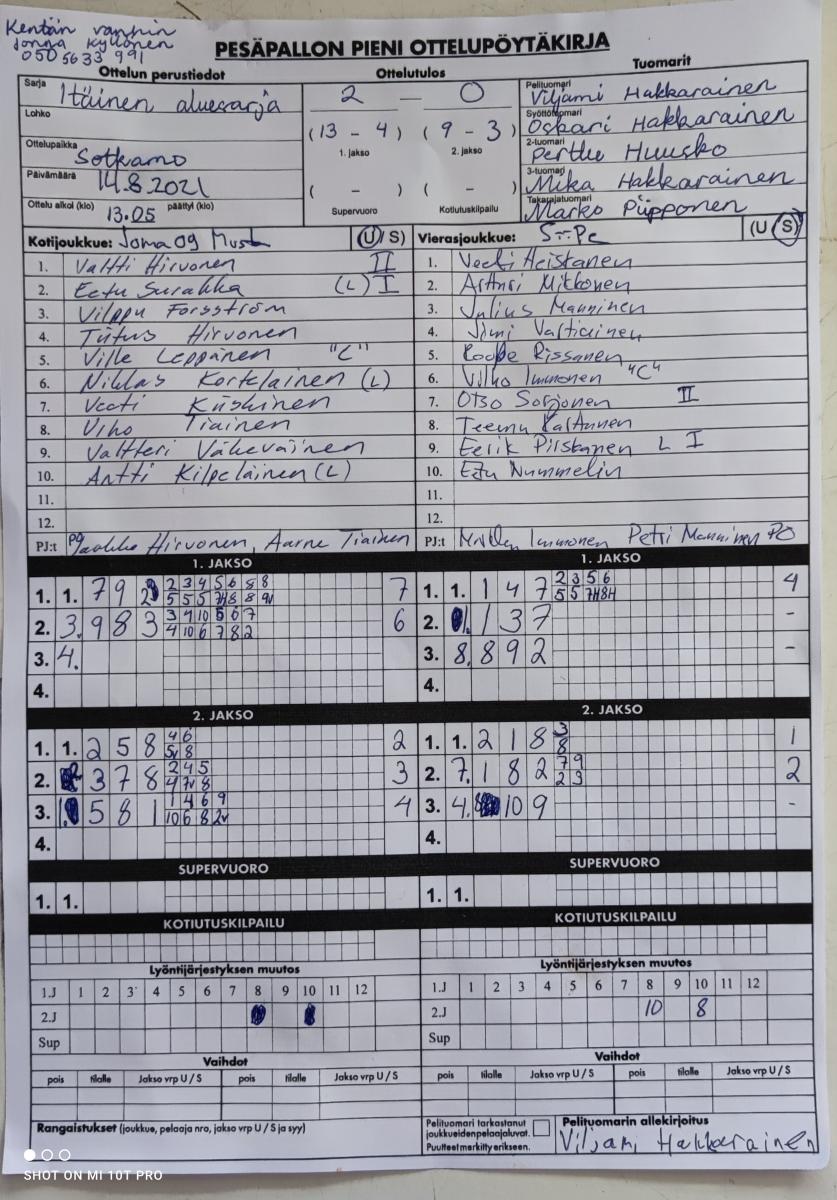 Kentän vanhin
Jonna Kyllönen
050 5633 991
PESÄPALLON PIENI OTTELUPÖYTÄKIRJA
Ottelun perustiedot
Sarja Itäinen aluesarja
Lohko
Ottelupaikka Sotkamo
Päivämäärä 14.8.2021
Ottelu alkoi (klo) 13.05 päättyi (klo)
Ottelutulos
2 — 0
(13 - 4) (9 - 3)
1. jakso 2. jakso
( - ) ( - )
Supervuoro Kotiutuskilpailu
Tuomarit
Pelituomari Viljami Hakkarainen
Syöttötuomari Oskari Hakkarainen
2-tuomari Perttu Huusko
3-tuomari Mika Hakkarainen
Takarajatuomari Marko Piipponen
Kotijoukkue: Joma og Must (U/S)
1. Valtti Hirvonen II
2. Eetu Surakka (L) I
3. Vilppu Forsström
4. Tiitus Hirvonen
5. Ville Leppänen "C"
6. Niklas Kortelainen (L)
7. Veeti Kiiskinen
8. Viho Tiainen
9. Valtteri Väkeväinen
10. Antti Kilpeläinen (L)
11.
12.
PJ:t PO Jaakko Hirvonen, Aarne Tiainen
Vierasjoukkue: S--Pe (U/S)
1. Veeti Heiskanen
2. Artturi Mikkonen
3. Julius Manninen
4. Jimi Valtiainen
5. Roope Rissanen
6. Vilho Immonen "C"
7. Otso Sorjonen II
8. Teemu Karttunen
9. Eerik Piiskanen L I
10. Eetu Nummelin
11.
12.
PJ:t Immonen Petri Manninen PO
1. JAKSO
1. 1. 7 9 2 2 3 4 5 6 8 8 7
5 5 5 7H 8 8 9v
2. 3. 9 8 3 3 9 10 5 6 7 6
4 10 6 7 8 2
3. 4.
4.
1. JAKSO
1. 1. 1 4 7 2 3 5 6 4
5 5 7H 8H
2. 1 3 7 -
3. 8. 8 9 2 -
4.
2. JAKSO
1. 1. 2 5 8 4 6 2
5v 8
2. 3 7 8 2 4 5 3
4 7v 8
3. 5 8 1 1 4 6 9 4
10 6 8 2v
4.
2. JAKSO
1. 1. 2 1 8 3 1
8
2. 7. 1 8 2 7 9 2
2 3
3. 4. 10 9 -
4.
SUPERVUORO
1. 1.
SUPERVUORO
1. 1.
KOTIUTUSKILPAILU
KOTIUTUSKILPAILU
Lyöntijärjestyksen muutos
1.J 1 2 3 4 5 6 7 8 9 10 11 12
2.J
Sup
Lyöntijärjestyksen muutos
1.J 1 2 3 4 5 6 7 8 9 10 11 12
2.J 10 8
Sup
Vaihdot
pois tilalle Jakso vrp U / S pois tilalle Jakso vrp U / S
Vaihdot
pois tilalle Jakso vrp U / S pois tilalle Jakso vrp U / S
Rangaistukset (joukkue, pelaaja nro, jakso vrp U / S ja syy)
Pelituomari tarkastanut
joukkueiden pelaajaluvat.
Puutteet merkitty erikseen.
Pelituomarin allekirjoitus
Viljami Hakkarainen
SHOT ON MI 10T PRO